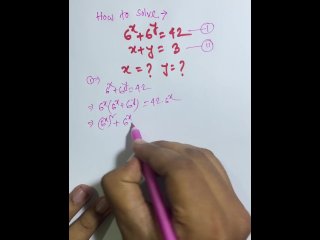 How to solve →
6^x + 6^y = 42 —(i)
x + y = 3 —(ii)
x = ? y = ?
(i)⇒ 6^x + 6^y = 42
⇒ 6^x (6^x + 6^y) = 42 · 6^x
⇒ (6^x)² + 6^x